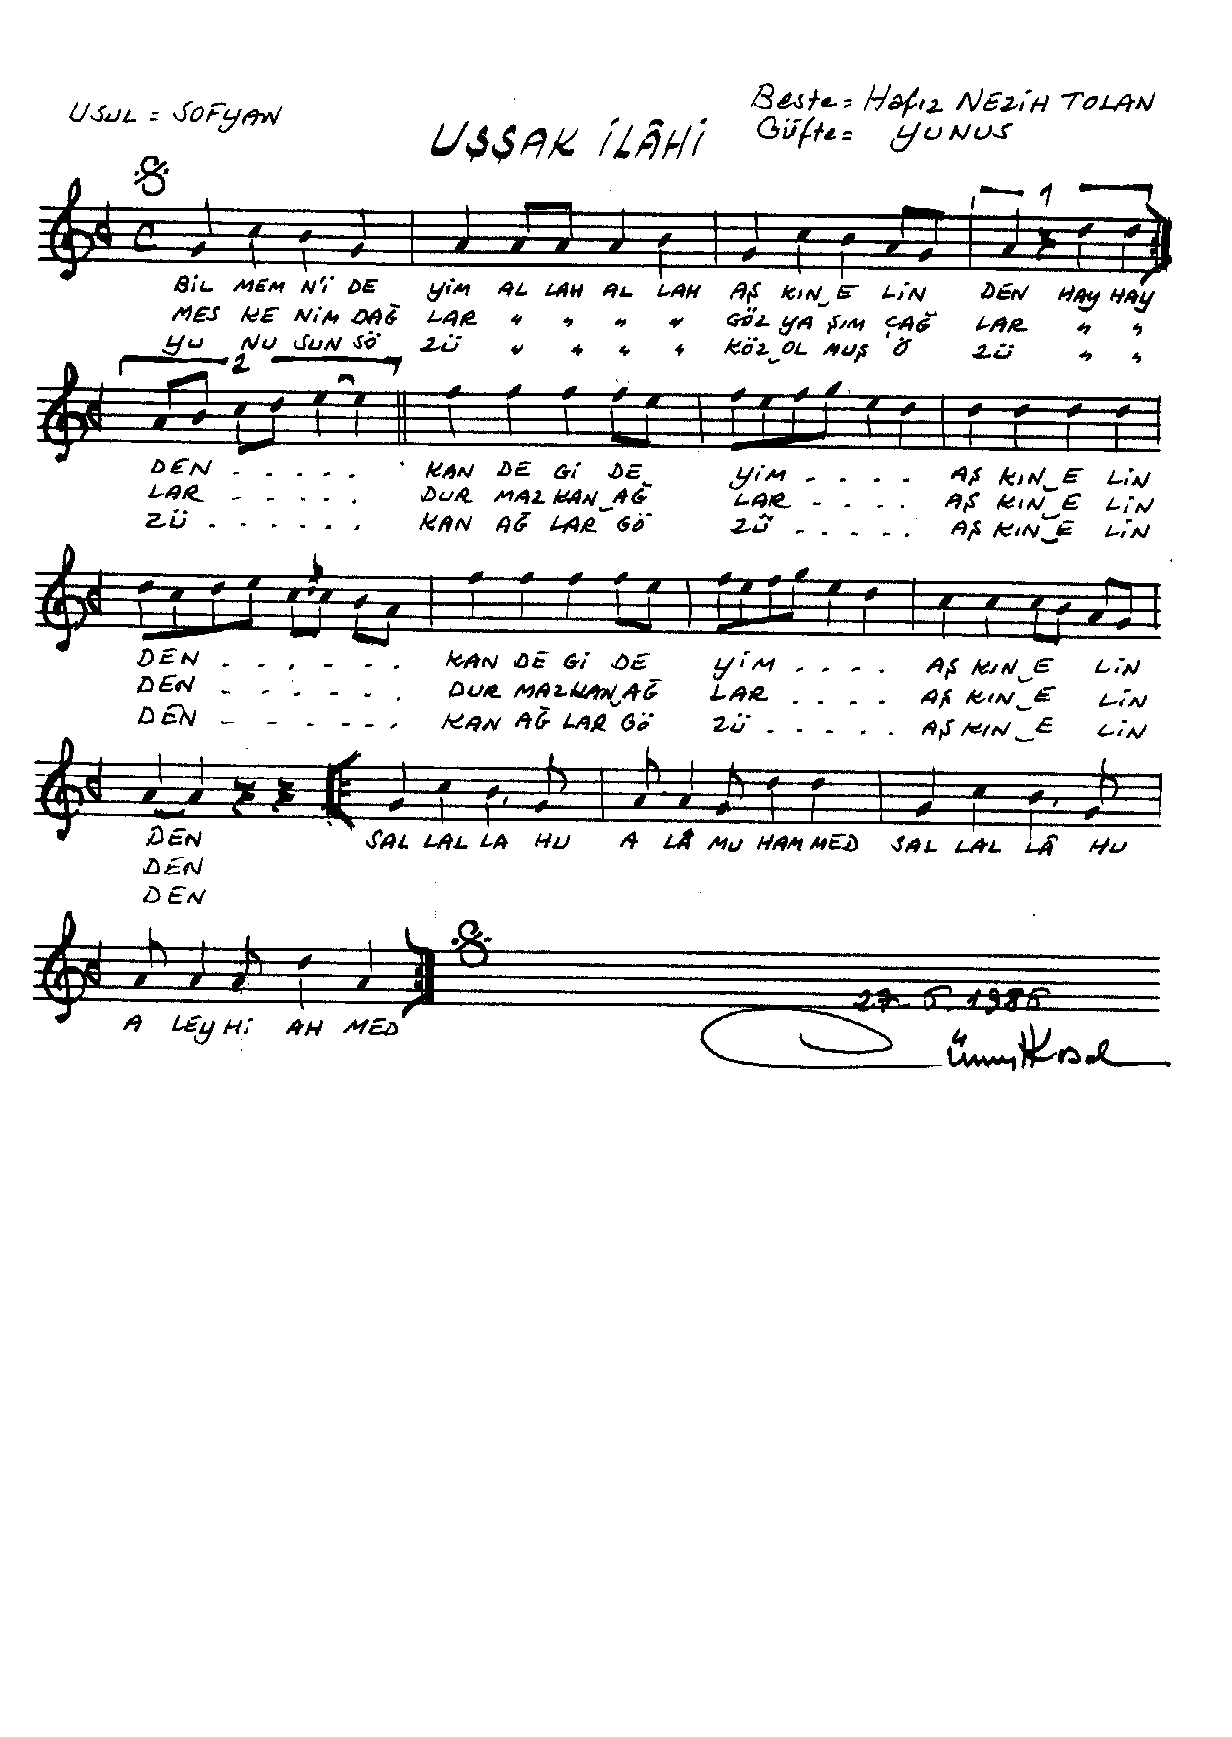 USUL = SOFYAN
UŞŞAK İLÂHİ
Beste = Hafız NEZİH TOLAN
Güfte = YUNUS
1
BİL MEM N'İ DE YİM AL LAH AL LAH AŞ KIN_E LİN DEN HAY HAY
MES KE NİM DAĞ LAR " " " " GÖZ YA ŞIM ÇAĞ LAR " "
YU NU SUN SÖ ZÜ " " " " KÖZ_OL MUŞ Ö ZÜ " "
2
DEN . . . . . KAN DE Gİ DE YİM . . . . AŞ KIN_E LİN
LAR . . . . . DUR MAZ KAN_AĞ LAR . . . . AŞ KIN_E LİN
ZÜ . . . . . . KAN AĞ LAR GÖ ZÜ . . . . . AŞ KIN_E LİN
DEN . . . . . . KAN DE Gİ DE YİM . . . . AŞ KIN_E LİN
DEN . . . . . . DUR MAZ KAN_AĞ LAR . . . . AŞ KIN_E LİN
DEN . . . . . . KAN AĞ LAR GÖ ZÜ . . . . . AŞ KIN_E LİN
DEN SAL LAL LA HU A LÂ MU HAM MED SAL LAL LÂ HU
DEN
DEN
A LEY Hİ AH MED
27. 6. 1986